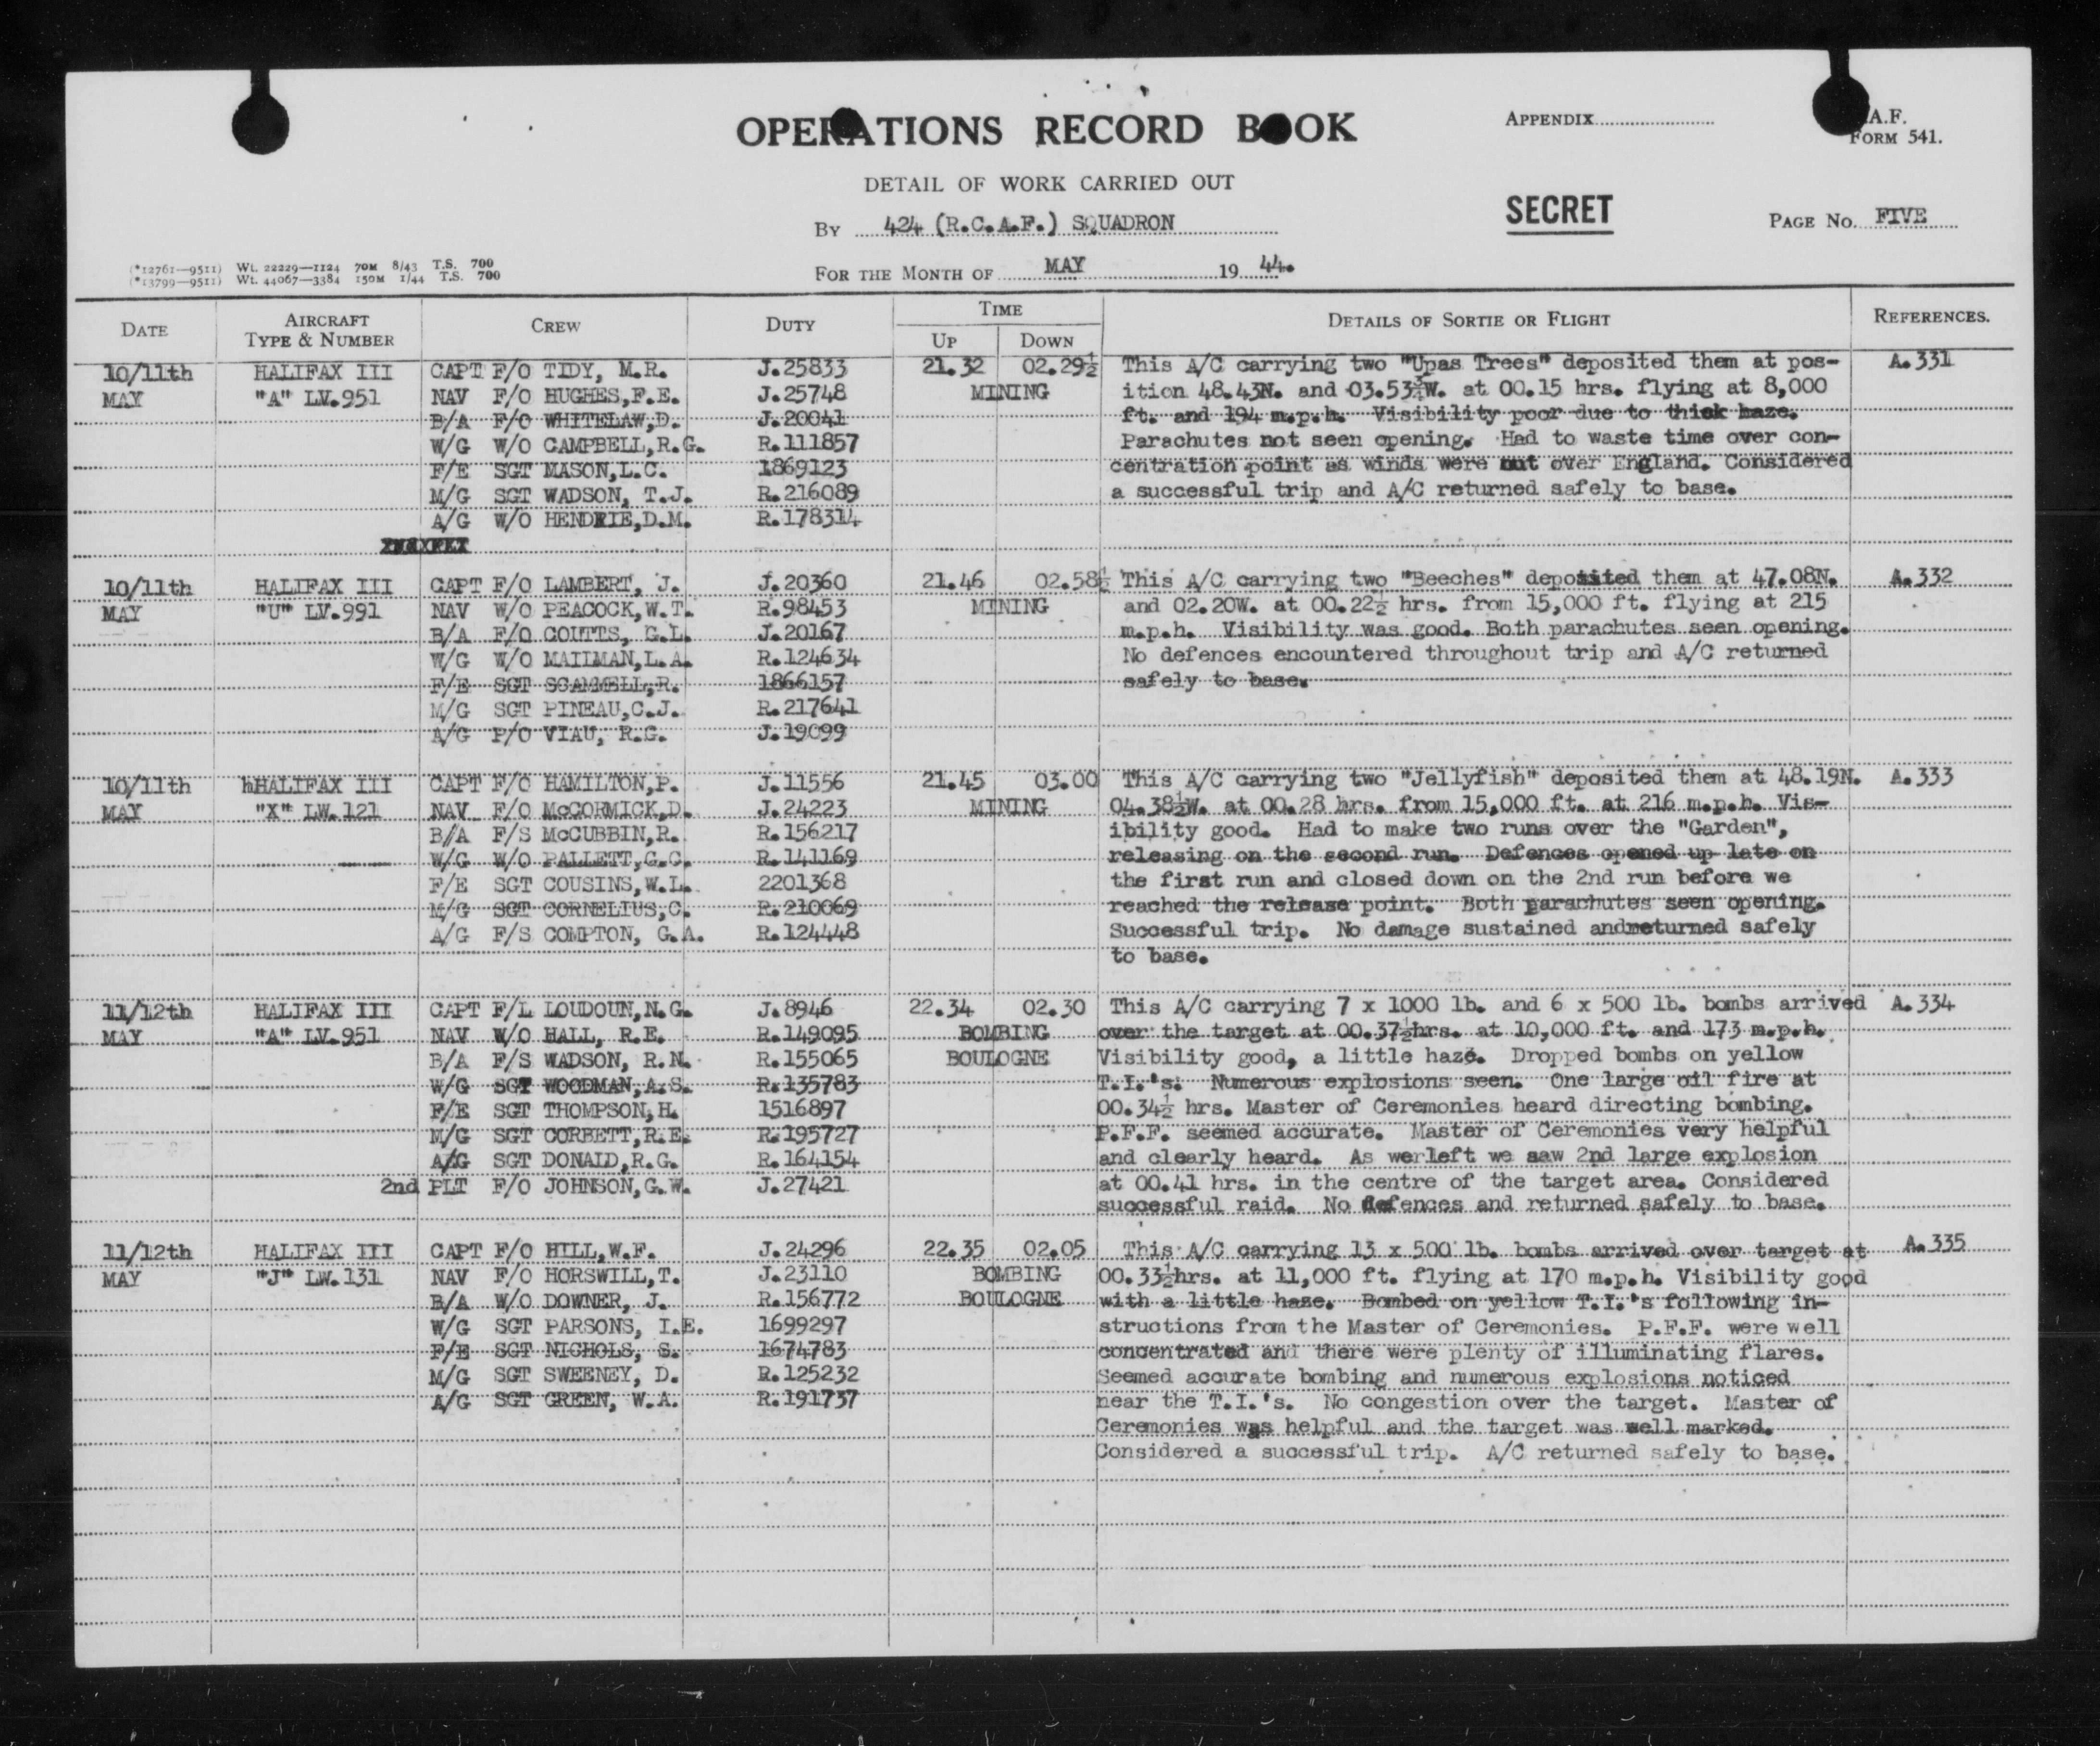 OPERATIONS RECORD BOOK
APPENDIX
A.F.
FORM 541.
DETAIL OF WORK CARRIED OUT
SECRET
BY 424 (R.C.A.F.) SQUADRON
PAGE No. FIVE
(*12761—9511) Wt. 22229—1124 70M 8/43 T.S. 700
(*13799—9511) Wt. 44067—3384 150M 1/44 T.S. 700
FOR THE MONTH OF MAY 1944.
DATE AIRCRAFT TYPE & NUMBER CREW DUTY TIME UP DOWN DETAILS OF SORTIE OR FLIGHT REFERENCES.
10/11th HALIFAX III CAPT F/O TIDY, M.R. J.25833 21.32 02.29½ This A/C carrying two "Upas Trees" deposited them at pos- A.331
MAY "A" LV.951 NAV F/O HUGHES,F.E. J.25748 MINING ition 48.43N. and 03.53¾W. at 00.15 hrs. flying at 8,000
B/A F/O WHITELAW,D. J.20041 ft. and 194 m.p.h. Visibility poor due to thick haze.
W/G W/O CAMPBELL,R.G. R.111857 Parachutes not seen opening. Had to waste time over con-
F/E SGT MASON,L.C. 1869123 centration point as winds were out over England. Considered
M/G SGT WADSON, T.J. R.216089 a successful trip and A/C returned safely to base.
A/G W/O HENDRIE,D.M. R.178314
10/11th HALIFAX III CAPT F/O LAMBERT, J. J.20360 21.46 02.58½ This A/C carrying two "Beeches" deposited them at 47.08N. A.332
MAY "U" LV.991 NAV W/O PEACOCK,W.T. R.98453 MINING and 02.20W. at 00.22½ hrs. from 15,000 ft. flying at 215
B/A F/O COUTTS, G.L. J.20167 m.p.h. Visibility was good. Both parachutes seen opening.
W/G W/O MAILMAN,L.A. R.124634 No defences encountered throughout trip and A/C returned
F/E SGT SCAMMELL,R. 1866157 safely to base.
M/G SGT PINEAU,C.J. R.217641
A/G P/O VIAU, R.G. J.19099
10/11th hHALIFAX III CAPT F/O HAMILTON,P. J.11556 21.45 03.00 This A/C carrying two "Jellyfish" deposited them at 48.19N. A.333
MAY "X" LW.121 NAV F/O McCORMICK,D. J.24223 MINING 04.38½W. at 00.28 hrs. from 15,000 ft. at 216 m.p.h. Vis-
B/A F/S McCUBBIN,R. R.156217 ibility good. Had to make two runs over the "Garden",
W/G W/O PALLETT,G.C. R.141169 releasing on the second run. Defences opened up late on
F/E SGT COUSINS,W.L. 2201368 the first run and closed down on the 2nd run before we
M/G SGT CORNELIUS,C. R.210069 reached the release point. Both parachutes seen opening.
A/G F/S COMPTON, G.A. R.124448 Successful trip. No damage sustained andreturned safely
to base.
11/12th HALIFAX III CAPT F/L LOUDOUN,N.G. J.8946 22.34 02.30 This A/C carrying 7 x 1000 lb. and 6 x 500 lb. bombs arrived A.334
MAY "A" LV.951 NAV W/O HALL, R.E. R.149095 BOMBING over the target at 00.37½hrs. at 10,000 ft. and 173 m.p.h.
B/A F/S WADSON, R.N. R.155065 BOULOGNE Visibility good, a little haze. Dropped bombs on yellow
W/G SGT WOODMAN,A.S. R.135783 T.I.'s. Numerous explosions seen. One large oil fire at
F/E SGT THOMPSON,H. 1516897 00.34½ hrs. Master of Ceremonies heard directing bombing.
M/G SGT CORBETT,R.E. R.195727 P.F.F. seemed accurate. Master of Ceremonies very helpful
A/G SGT DONALD,R.G. R.164154 and clearly heard. As werleft we saw 2nd large explosion
2nd PLT F/O JOHNSON,G.W. J.27421 at 00.41 hrs. in the centre of the target area. Considered
successful raid. No defences and returned safely to base.
11/12th HALIFAX III CAPT F/O HILL,W.F. J.24296 22.35 02.05 This A/C carrying 13 x 500 lb. bombs arrived over target at A.335
MAY "J" LW.131 NAV F/O HORSWILL,T. J.23110 BOMBING 00.33½hrs. at 11,000 ft. flying at 170 m.p.h. Visibility good
B/A W/O DOWNER, J. R.156772 BOULOGNE with a little haze. Bombed on yellow T.I.'s following in-
W/G SGT PARSONS, I.E. 1699297 structions from the Master of Ceremonies. P.F.F. were well
F/E SGT NICHOLS, S. 1674783 concentrated and there were plenty of illuminating flares.
M/G SGT SWEENEY, D. R.125232 Seemed accurate bombing and numerous explosions noticed
A/G SGT GREEN, W.A. R.191737 near the T.I.'s. No congestion over the target. Master of
Ceremonies was helpful and the target was well marked.
Considered a successful trip. A/C returned safely to base.